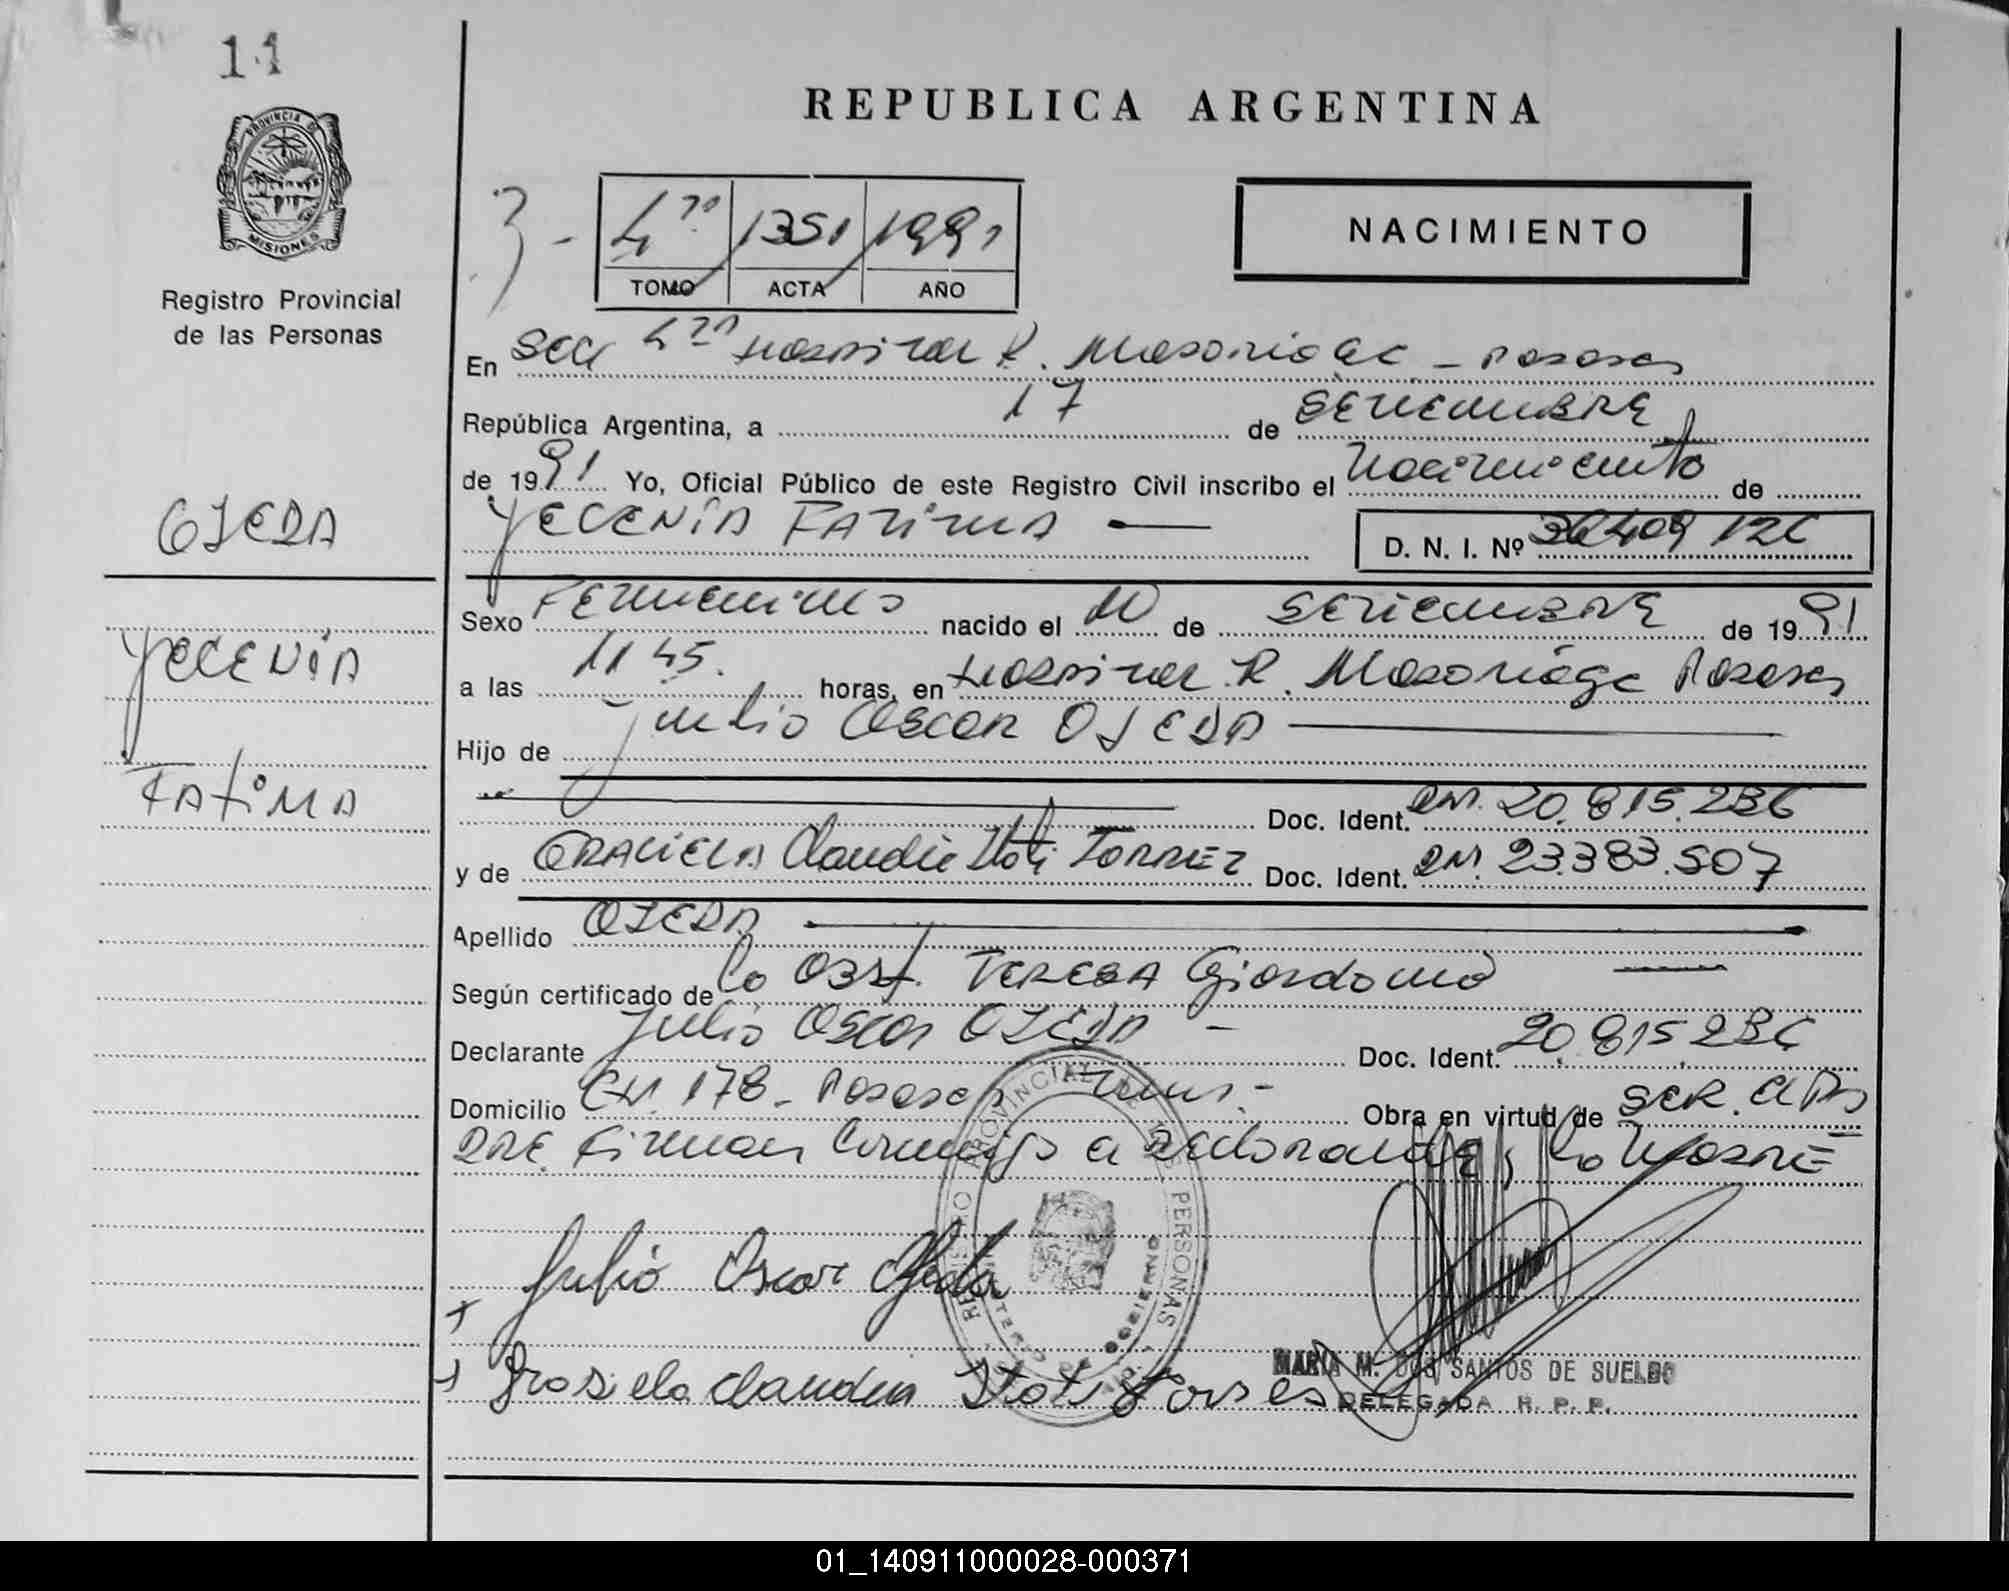 11
PROVINCIA DE
MISIONES
Registro Provincial
de las Personas
REPUBLICA ARGENTINA
3 - 4ta 1351 1991
TOMO ACTA AÑO
NACIMIENTO
En Sec 4ta Hospital R. Madariaga - Posadas
República Argentina, a 17 de SETIEMBRE
de 1991 Yo, Oficial Público de este Registro Civil inscribo el Nacimiento de
YECENIA FATIMA — D. N. I. Nº 36409126
OJEDA
YECENIA
FATIMA
Sexo FEMENINO nacido el 10 de SETIEMBRE de 1991
a las 11 45. horas, en Hospital R. Madariaga Posadas
Hijo de Julio Oscar OJEDA —
Doc. Ident. DNI. 20.815.236
y de GRACIELA Claudia Itati TORREZ Doc. Ident. DNI. 23.383.507
Apellido OJEDA —
Según certificado de la Obst. TERESA Giordano —
Declarante Julio Oscar OJEDA - Doc. Ident. 20.815.236
Domicilio CH. 178 - Posadas - Mnes. - Obra en virtud de SER. EL PA
DRE. Firman Conmigo el declarante, la MADRE
Julio Oscar Ojeda
Grasiela claudia Itati torres
REGISTRO PROVINCIAL DE LAS PERSONAS
MINISTERIO DE GOBIERNO
MARIA M. DOS SANTOS DE SUELDO
DELEGADA R. P. P.
01_140911000028-000371